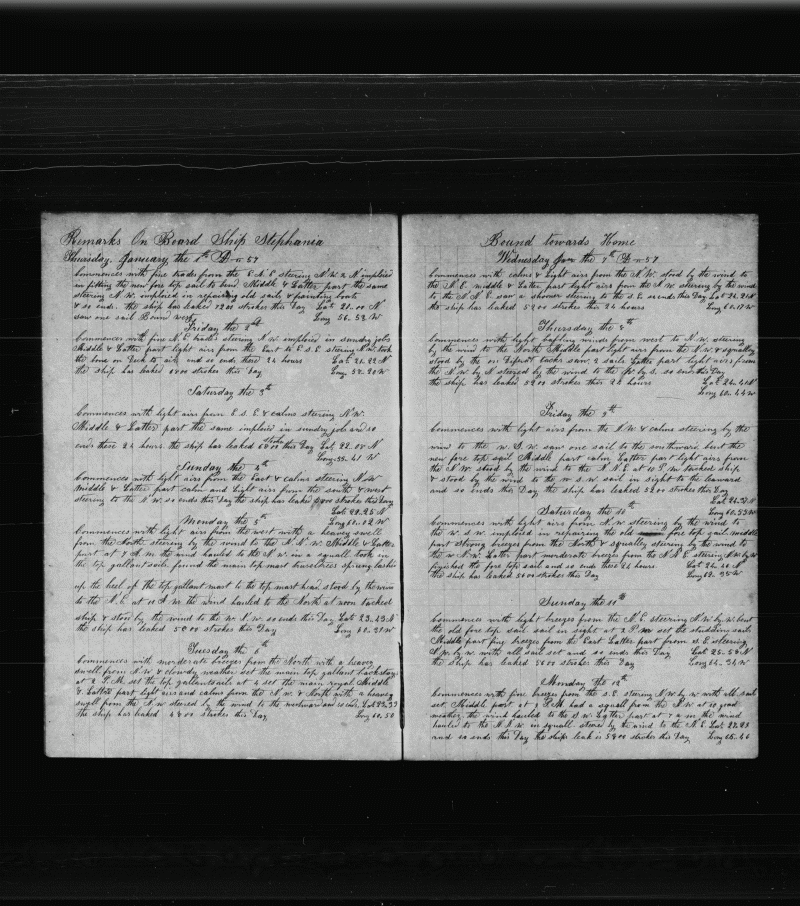 Remarks On Board Ship Stephania
Thursday January the 1st D 57
Commences with fine trades from the E.N.E steering N.W. & N imploied
in fitting the new fore top sail to bend Middle & Latter part the same
steering N.W. imploied in repairing old sails & painting boats
& so ends. the ship has leaked strokes this Day Lat 21.00 N
saw one sail Bound west Long 56.52 W
Friday the 2nd
Commences with fine N.E. trades steering N.W imploied in sundry jobs
Middle & Latter part light airs from the East to E.S.E. steering N.W. took
the bone on Deck to air and so ends these 24 hours Lat 21.22 N
the ship has leaked strokes this Day Long W
Saturday the 3rd
Commences with light airs from E.S.E. & calms steering N.W.
Middle & Latter part the same imploied in sundry job and so
ends these 24 hours the ship has leaked strokes this Day Lat. 22.08 N
Long. 59.41 W
Sunday the 4th
Commences with light airs from the East & calms steering N.W
middle & Latter part calm and light airs from the south & west
steering to the N.W. so ends this Day the ship has leaked strokes this Day
Lat 22.25 N
Monday the 5th Long 60.02 W
Commences with light airs from the west with a heavey swell
from the North steering by the wind to the N.N.W. Middle & Latter
part at 7 A.m the wind hauled to the N.W. in a squall took in
the top gallant sails. found the main top mast trussel trees sprung lashed
up the heel of the top gallant mast to the top mast head stood by the wind
to the N.E. at 10 A.M the wind hauled to the North at noon tacked
ship & stood by the wind to the W.N.W. so ends this Day Lat 23.43 N
the ship has leaked 5000 strokes this Day Long 60.21 W
Tuesday the 6th
Commences with moderate breezes from the North with a heavey
swell from N.W & clowdy weather set the main top gallant backstays
at 2 P.M. set the top gallantsails at 4 set the main royal Middle
& Latter part light airs and calms from the N.W. & North with a heavey
swell from the N.W steered by the wind to the westward and so ends. Lat 23.33
the ship has leaked 4800 strokes this Day Long 60.50
Bound towards Home
Wednesday Jan the 7th D 57
Commences with calms & Light airs from the N.W. stood by the wind to
the N.E. middle & Latter part light airs from the N.W steering by the wind
to the N.N.E. saw a shower steering to the S.E. so ends this Day Lat 24.21 N
the ship has leaked 5200 strokes this 24 hours Long 60.17 W
Thursday the 8th
Commences with light bafling winds from west to N.W. steering
by the wind to the North Middle part light airs from the N.W & squalley
stood by the in Different tacks saw 2 sails Latter part light airs from
the N.W by N steered by the wind to the W. by S. so ends this Day
the ship has leaked 5200 strokes these 24 hours Lat. 24.41 N
Long 60.44 W
Friday the 9th
Commences with light airs from the N.W & calms steering by the
wind to the W.S.W. saw one sail to the southward, bent the
new fore top sail Middle part calm Latter part light airs from
the N.W. stood by the wind to the N.N.E at 10 P.m tacked ship
& stood by the wind to the W.S.W. sail in sight to the leaward
and so ends this Day the ship has leaked 5200 strokes this Day
Lat 24.37 N
Saturday the 10th Long 60.53 W
Commences with light airs from N.W steering by the wind to
the W.S.W. imploied in repairing the old fore top sail middle
part strong breezes from the North & squally steering by the wind to
the W.N.W. Latter part morderate breeze from the N.N.E. steering N.W. by W
finished the fore top sail and so ends these 24 hours. Lat 24. N
the ship has leaked 5600 strokes this Day Long 62. W
Sunday the 11th
Commences with light breezes from the N.E. steering N.W. by W. bent
the old fore top sail sail in sight at 2 P.m set the studding sails
Middle part fine breezes from the East Latter part from S.E steering
N.W. by W. with all sail set and so ends this Day Lat 25.52 N
the ship has leaked 5600 strokes this Day Long 64.24 W
Monday the 12th
Commences with fine breezes from the S.E. steering N.W. by W with all sail
set. Middle part at 9 P.M had a squall from the N.W at 10 good
weather, the wind hauled to the S.W. Latter part at 7 A.m the wind
hauled to the N.N.W. in squall stood by the wind to the N.E Lat 27.23
and so ends this Day the ships leak is 5800 strokes this Day Long 65.46